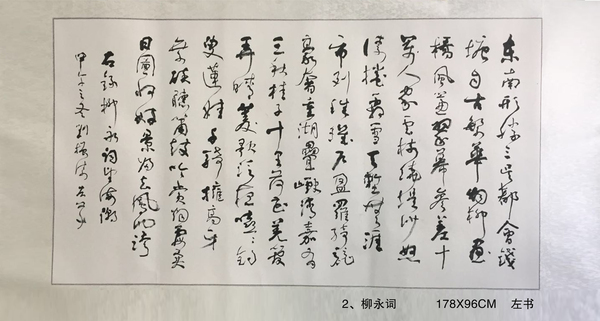 东南形胜三吴都会钱
塘自古繁华烟柳画
桥风帘翠幕参差十
万人家云树绕堤沙怒
涛卷霜雪天堑无涯
市列珠玑户盈罗绮竞
豪奢重湖叠巘清嘉有
三秋桂子十里荷花羌管
弄晴菱歌泛夜嬉々钓
叟莲娃千骑拥高牙
乘醉听箫鼓吟赏烟霞异
日图将好景归去凤池夸
右录柳永词望海潮
甲午之冬刘
2、柳永词 178X96CM 左书